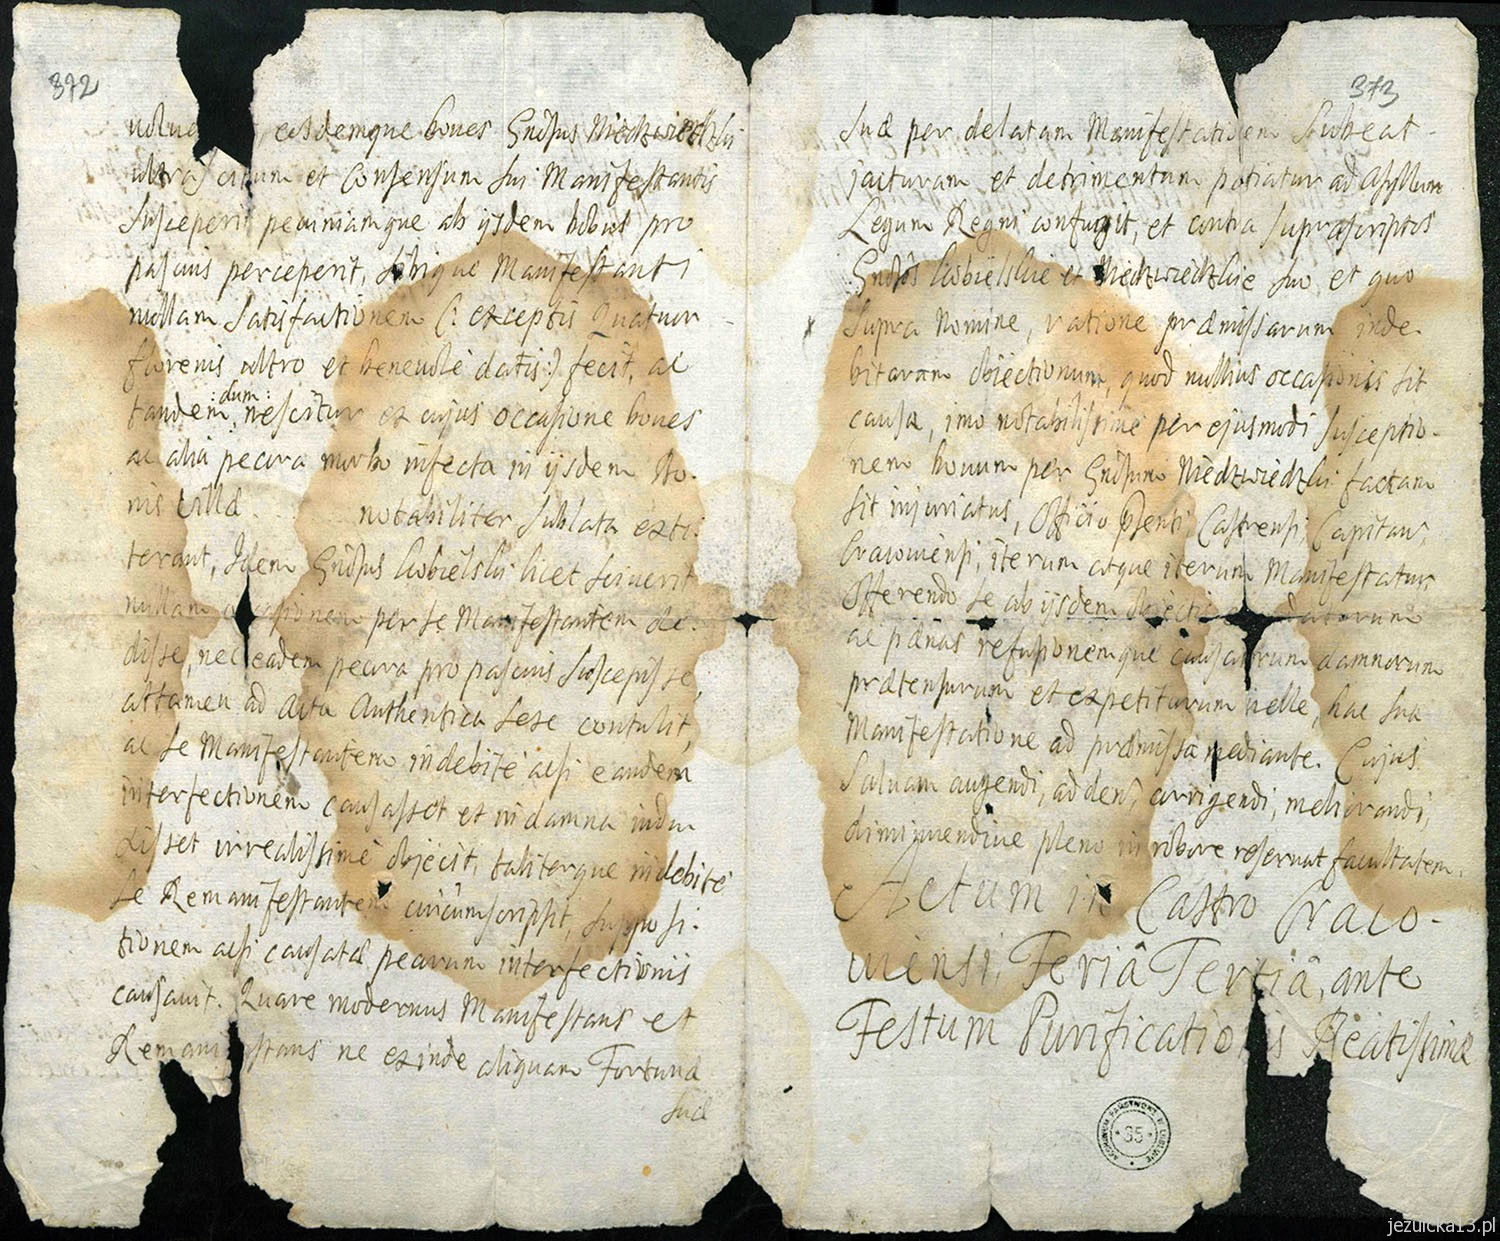 872
eosdemque boves Gnosus Niedzwiedzki
ultra scitum et Consensum sui Manifestantis
susceperit pecuniamque ab ijsdem bobus pro
pascuis perceperit, sibique Manifestanti
nullam satisfactionem (: exceptis Quatuor
florenis ultro et benevole datis :) fecit, ac
:dum:
tandem, nescitur ex cujus occasione boves
ac alia pecora morbo infecta in ijsdem Bo-
nis Villæ notabiliter sublata exti-
terant, Idem Gnosus Kobielski licet sciverit
nullam occasionem per se Manifestantem de-
disse, nec eadem pecora pro pascuis suscepisse
attamen ad Acta Authentica sese contulit,
ac se Manifestantem indebitè acsi eandem
interfectionem causasset et in damna indu
xisset irrealissimè objecit, taliterque indebitè
se Remanifestantem circumscripsit, supposi-
tionem acsi causatæ pecorum interfectionis
causavit. Quare modernus Manifestans et
Remanifestans ne exinde aliquam Fortunæ
suæ
373
suæ per delatam Manifestationem subeat
jacturam et detrimentum patiatur ad Asyllum
Legum Regni confugit, et contra supræscriptos
Gnosos Kobielskie et Niedzwiedzkie suo et quo
supra Nomine, ratione præmissarum inde-
bitarum objectionum, quod nullius occasionis sit
causa, imo notabilissimè per ejusmodi susceptio-
nem bovum per Gnosum Niedzwiedzki factam
sit injuriatus, Officio Psenti Castrensi Capitan:
Cracoviensi, iterum atque iterum Manifestatur,
Offerendo se ab ijsdem
ac pænas refusionemque causatorum damnorum
prætensurum et expetiturum velle, hac sua
Manifestatione ad præmissa mediante. Cujus
Salvam augendi, addendi, corrigendi, meliorandi,
diminuendive pleno in robore reservat facultatem.
Actum in Castro Craco-
viensi, Feriâ Tertiâ, ante
Festum Purificationis Beatissimæ
ARCHIWUM PAŃSTWOWE W LUBLINIE
35
jezuicka13.pl